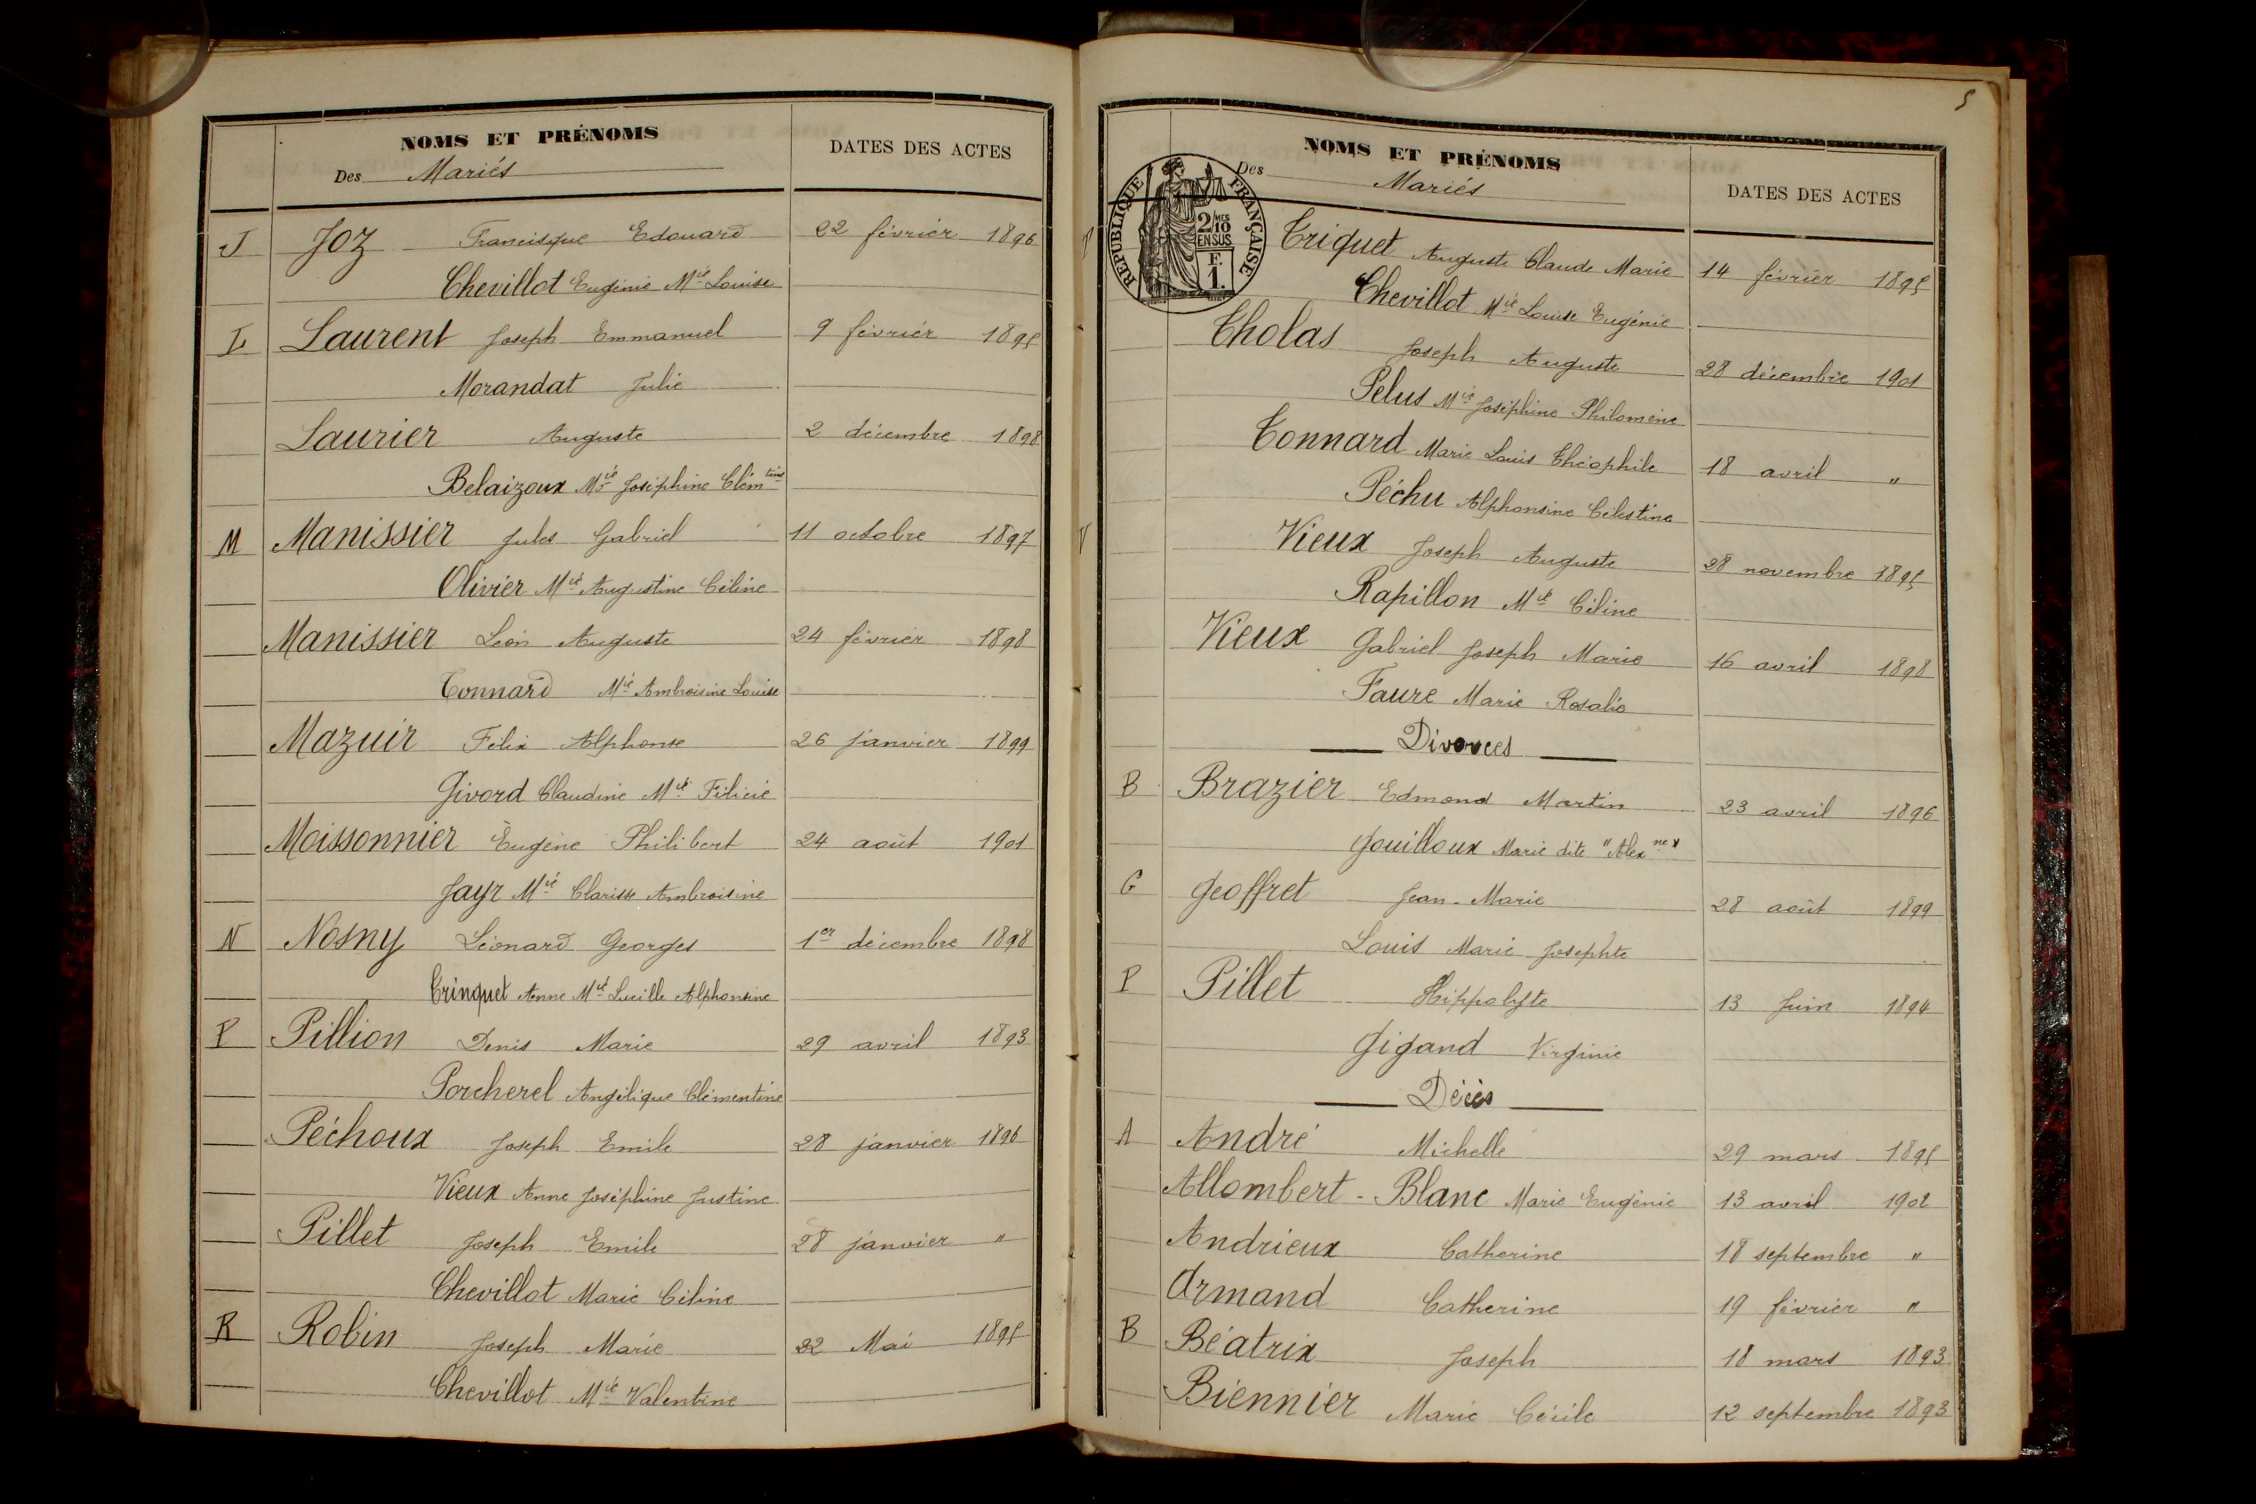 NOMS ET PRÉNOMS
Des Mariés
DATES DES ACTES
J Joz Francisque Edouard 22 février 1896
Chevillot Eugénie Mie Louise
L Laurent Joseph Emmanuel 9 février 1895
Morandat Julie
Laurier Auguste 2 décembre 1898
Belaizoux Mie Joséphine Clémtine
M Manissier Jules Gabriel 11 octobre 1897
Olivier Mie Augustine Céline
Manissier Léon Auguste 24 février 1898
Tonnard Mie Ambroisine Louise
Mazuir Félix Alphonse 26 janvier 1899
Givord Claudine Mie Félicie
Moissonnier Eugène Philibert 24 août 1901
Jayr Mie Clarisse Ambroisine
N Nosny Léonard Georges 1er décembre 1898
Trinquet Anne Mie Lucille Alphonsine
P Pillion Denis Marie 29 avril 1893
Porcherel Angélique Clémentine
Péchoux Joseph Emile 28 janvier 1896
Vieux Anne Joséphine Justine
Pillet Joseph Emile 28 janvier "
Chevillot Marie Céline
R Robin Joseph Marie 22 Mai 1895
Chevillot Mie Valentine
5
NOMS ET PRÉNOMS
Des Mariés
DATES DES ACTES
RÉPUBLIQUE FRANÇAISE
2/10 MES
EN SUS
F.
1.
Triquet Auguste Claude Marie 14 février 1895
Chevillot Mie Louise Eugénie
Tholas Joseph Auguste 28 décembre 1901
Pelus Mie Joséphine Philomène
Tonnard Marie Louis Théophile 18 avril "
Péchu Alphonsine Célestine
V Vieux Joseph Auguste 28 novembre 1895
Rapillon Mie Céline
Vieux Gabriel Joseph Marie 16 avril 1898
Faure Marie Rosalie
Divorces
B Brazier Edmond Martin 23 avril 1896
Gouilloux Marie dite "Alexne"
G Geoffret Jean-Marie 28 août 1899
Louis Marie Josephte
P Pillet Hippolyte 13 Juin 1894
Gigand Virginie
Décès
A André Michelle 29 mars 1895
Allombert-Blanc Marie Eugénie 13 avril 1902
Andrieux Catherine 18 septembre "
Armand Catherine 19 février "
B Béatrix Joseph 18 mars 1893
Biennier Marie Cécile 12 septembre 1893